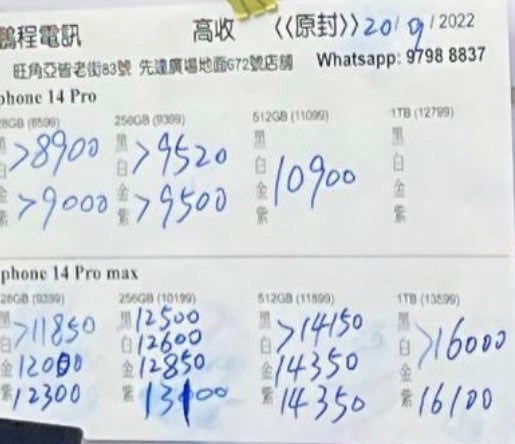 鵬程電訊 高收 《《原封》》 20/9/2022
旺角亞皆老街83號 先達廣場地面G72號店舖 Whatsapp: 9798 8837
phone 14 Pro
28GB (8599) 256GB (9399) 512GB (11099) 1TB (12799)
黑 黑 黑 黑
>8900 >9520
白 白 白 白
10900
金 金 金 金
>9000 >9500
紫 紫 紫 紫
phone 14 Pro max
28GB (9399) 256GB (10199) 512GB (11899) 1TB (13599)
黑 黑 12500 黑 黑
>11850 >14150 >16000
白 白 12600 白 白
金 12000 金 12850 金 14350 金
紫 12300 紫 13100 紫 14350 紫 16100